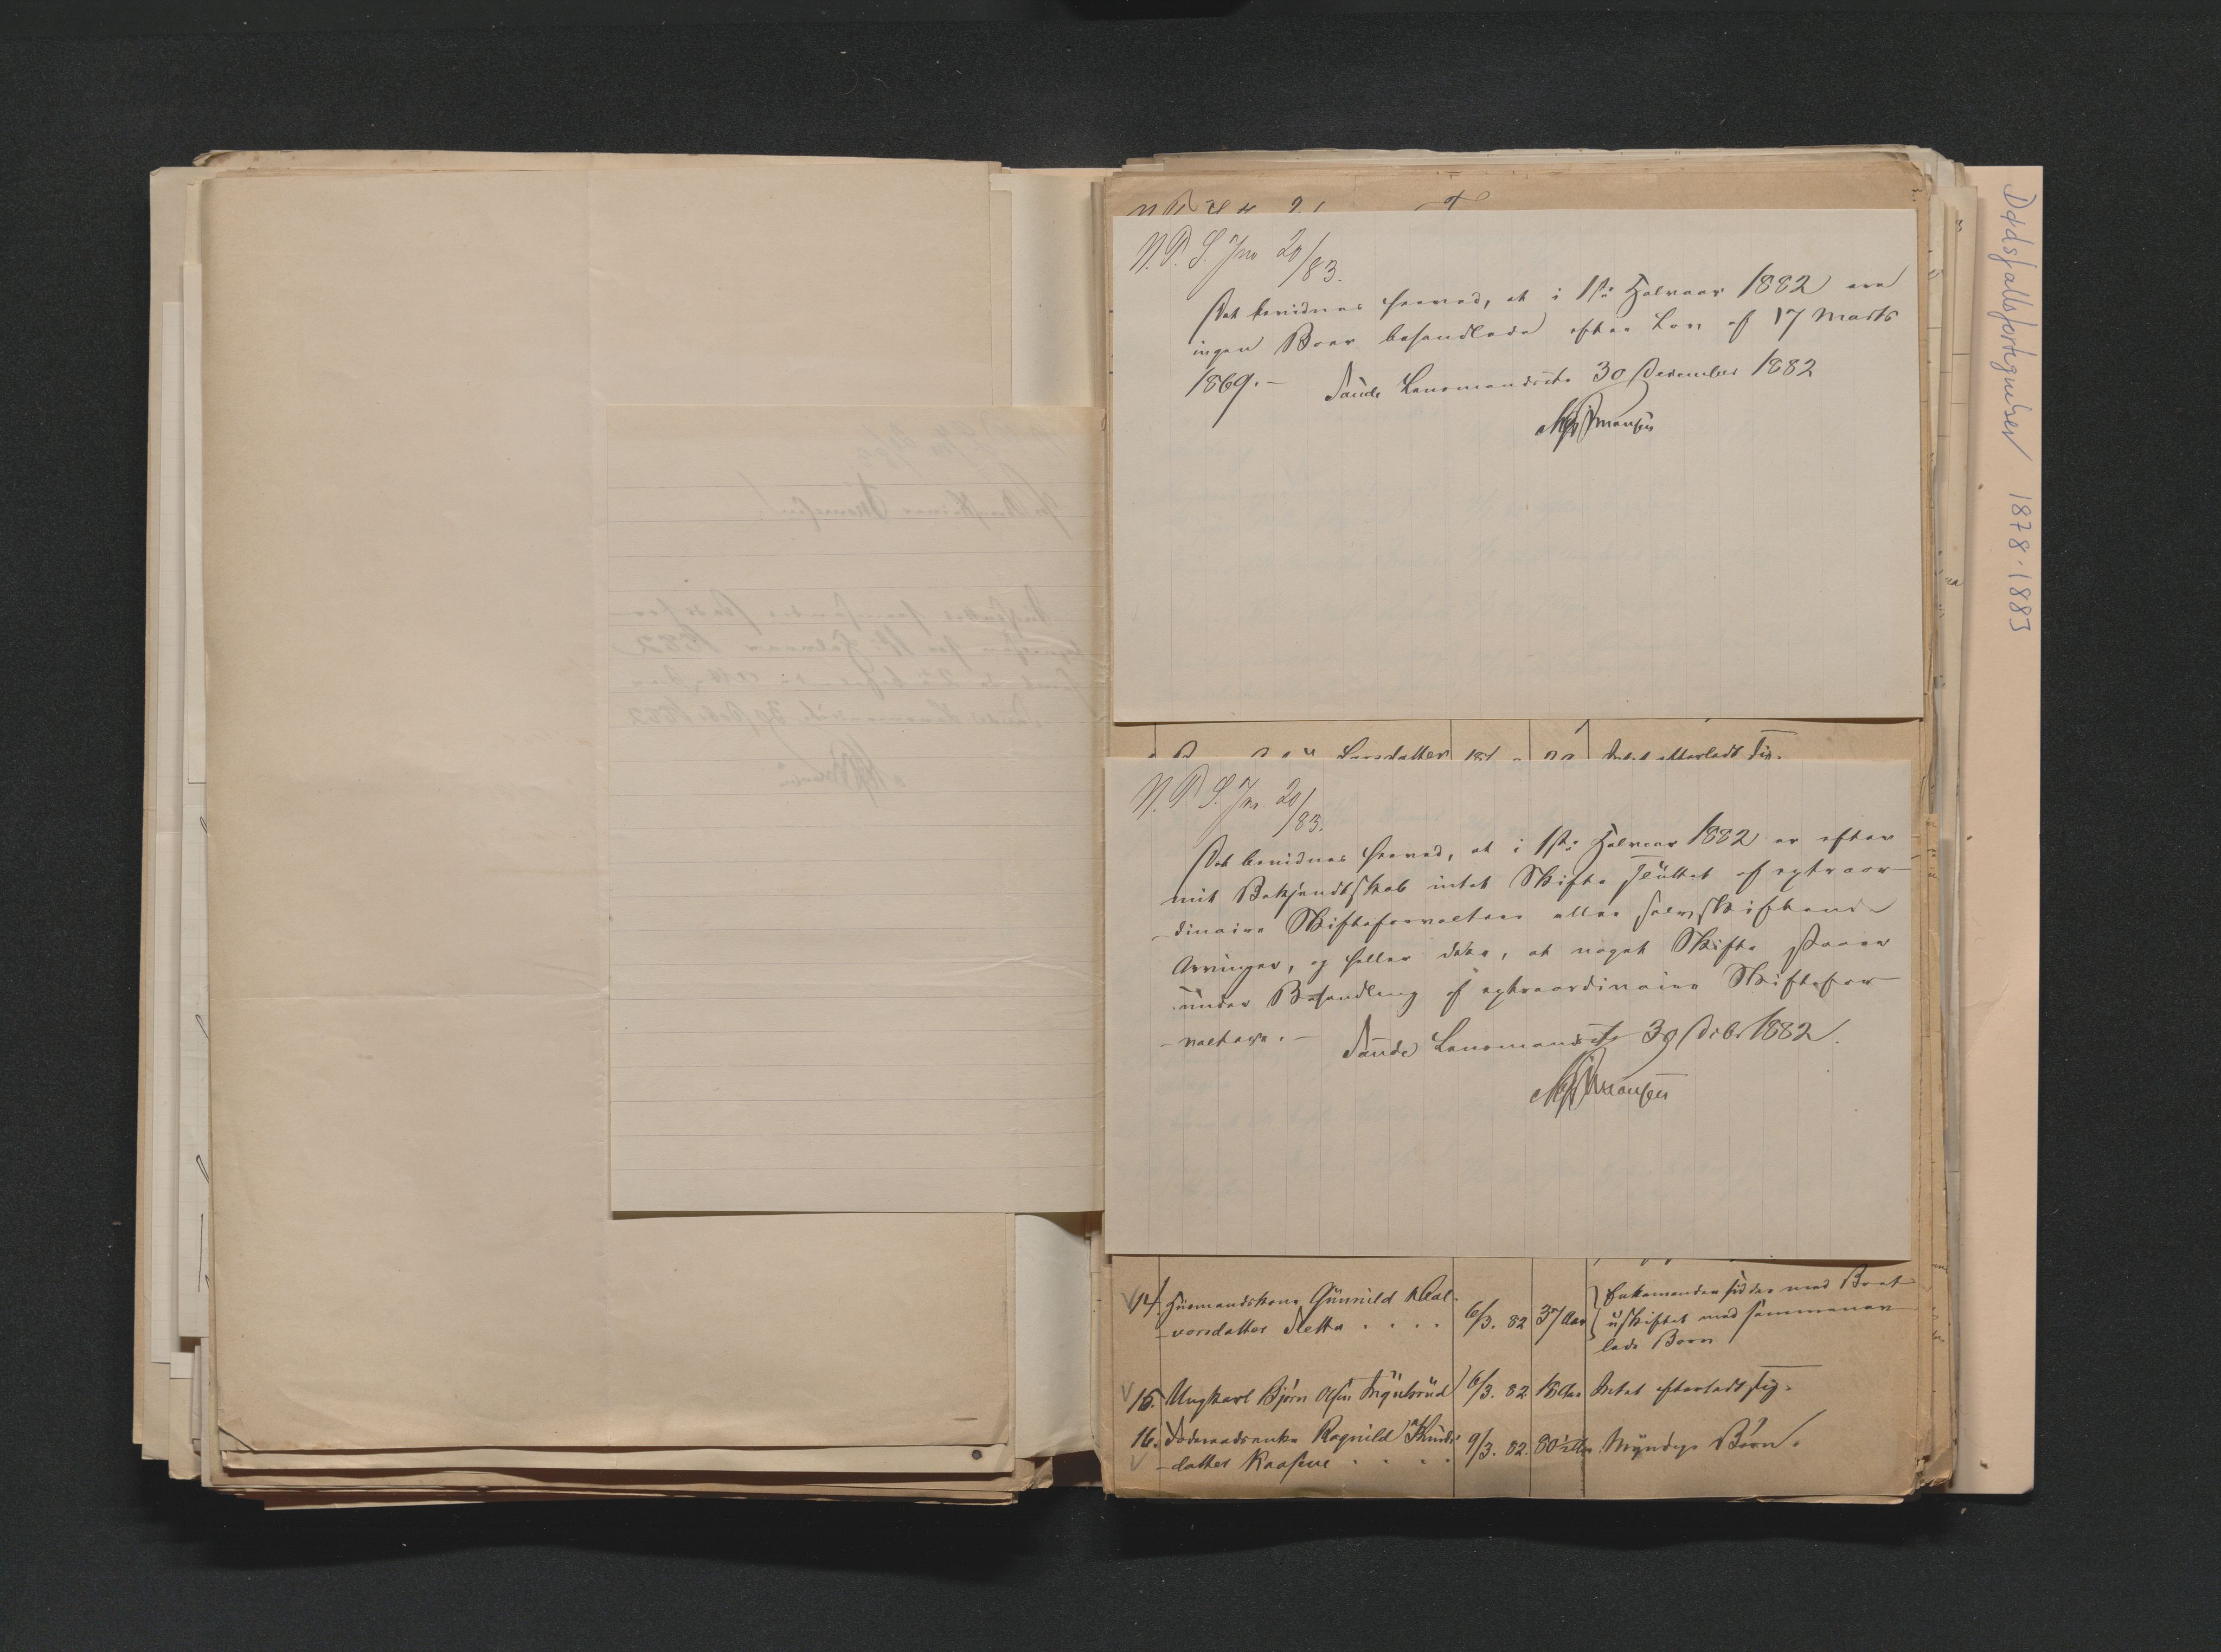 N. P. S. Jno 20/83.
Det bevidnes herved, at i 1ste Halvaar 1882 ere
ingen Boer behandlede efter Lov af 17 Marts
1869. –
Saude Lensmandsete 30 December 1882
Larsdatter
Intet efterladt sig.
N. P. S. Jno. 20/83.
Det bevidnes herved, at i 1ste Halvaar 1882 er efter
mit Bekjendtskab intet Skifte sluttet af extraor-
-dinaire Skifteforvaltere eller selvskiftende
Arvinger, og heller ikke, at noget Skifte staaer
under Behandling af extraordinaire Skiftefor-
-valtere. –
Saude Lensmandsete 30 Dcbr 1882.
14. Huusmandskone Gunnild Hal-
-vorsdatter Sletta . . . . 6/3. 82 37 Aar Enkemanden sidder med Boet
uskiftet med sammenav-
lede Børn
15. Ungkarl Bjørn Olsen 6/3. 82 Intet efterladt sig.
16. Føderaadsenke Ragnild Knuds-
-datter Kaasene . . . . 9/3. 82. 80½ Aar Myndige Børn.
Dødsfallsfortegnelser 1878-1883